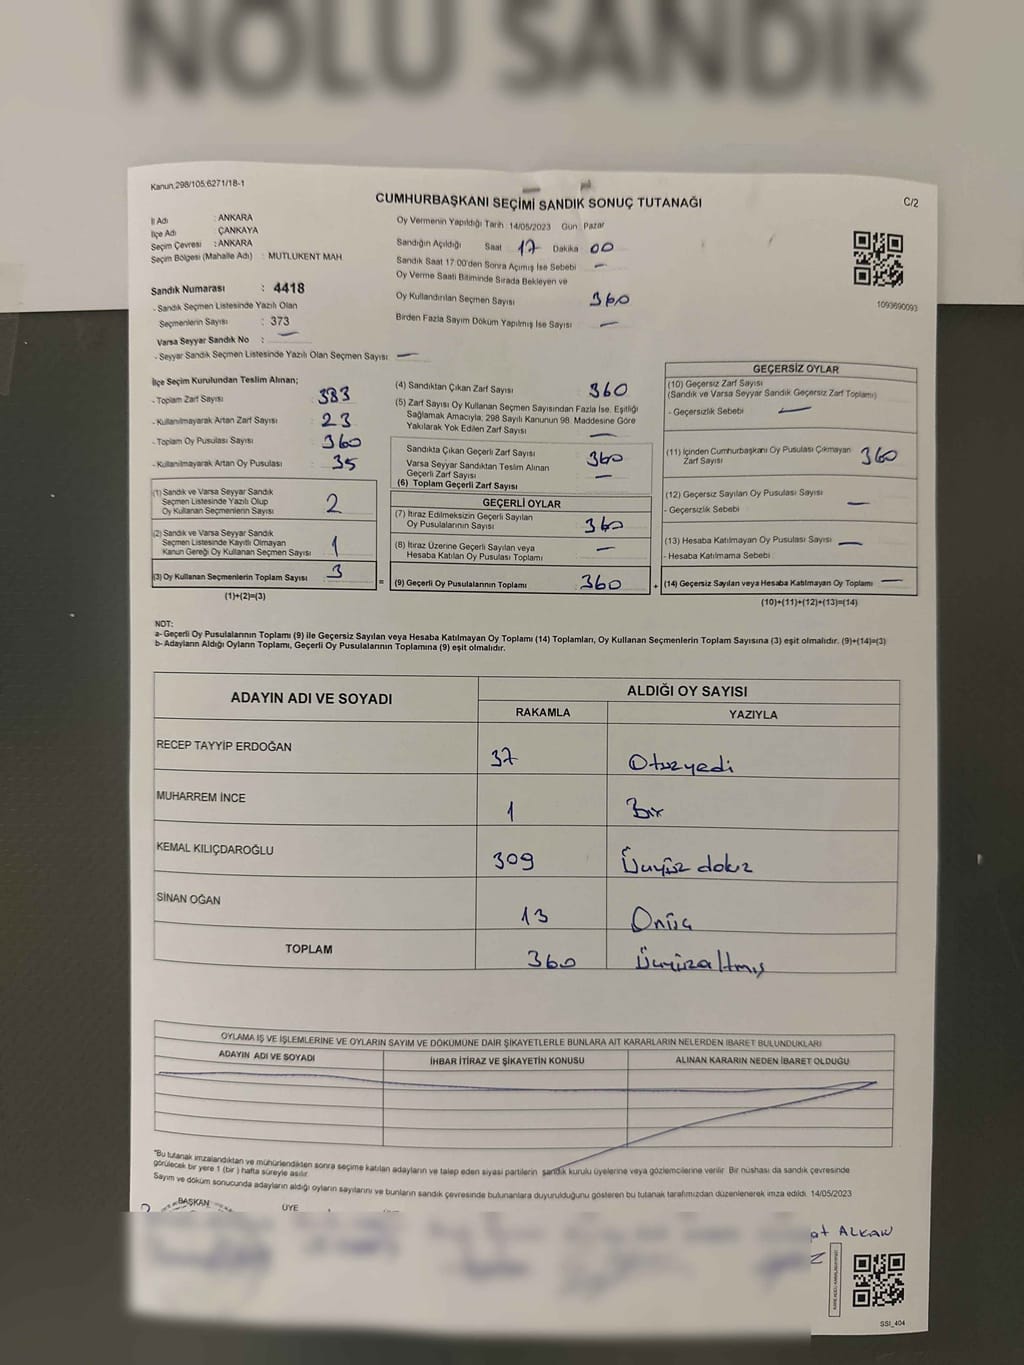 NOLU SANDIK
Kanun,298/105;6271/18-1
CUMHURBAŞKANI SEÇİMİ SANDIK SONUÇ TUTANAĞI
C/2
İl Adı : ANKARA
İlçe Adı : ÇANKAYA
Seçim Çevresi : ANKARA
Seçim Bölgesi (Mahalle Adı) : MUTLUKENT MAH
Sandık Numarası : 4418
- Sandık Seçmen Listesinde Yazılı Olan
Seçmenlerin Sayısı : 373
Varsa Seyyar Sandık No : —
- Seyyar Sandık Seçmen Listesinde Yazılı Olan Seçmen Sayısı : —
Oy Vermenin Yapıldığı Tarih 14/05/2023 Gün Pazar
Sandığın Açıldığı Saat 17 Dakika 00
Sandık Saat 17:00'den Sonra Açımış İse Sebebi —
Oy Verme Saati Bitiminde Sırada Bekleyen ve
Oy Kullandırılan Seçmen Sayısı 360
Birden Fazla Sayım Döküm Yapılmış İse Sayısı —
1093690093
İlçe Seçim Kurulundan Teslim Alınan;
- Toplam Zarf Sayısı 383
- Kullanılmayarak Artan Zarf Sayısı 23
- Toplam Oy Pusulası Sayısı 360
- Kullanılmayarak Artan Oy Pusulası 35
(1) Sandık ve Varsa Seyyar Sandık
Seçmen Listesinde Yazılı Olup
Oy Kullanan Seçmenlerin Sayısı 2
(2) Sandık ve Varsa Seyyar Sandık
Seçmen Listesinde Kayıtlı Olmayan
Kanun Gereği Oy Kullanan Seçmen Sayısı 1
(3) Oy Kullanan Seçmenlerin Toplam Sayısı 3
(1)+(2)=(3)
=
(4) Sandıktan Çıkan Zarf Sayısı 360
(5) Zarf Sayısı Oy Kullanan Seçmen Sayısından Fazla İse, Eşitliği
Sağlamak Amacıyla, 298 Sayılı Kanunun 98. Maddesine Göre
Yakılarak Yok Edilen Zarf Sayısı —
Sandıkta Çıkan Geçerli Zarf Sayısı 360
Varsa Seyyar Sandıktan Teslim Alınan
Geçerli Zarf Sayısı —
(6) Toplam Geçerli Zarf Sayısı
GEÇERLİ OYLAR
(7) İtiraz Edilmeksizin Geçerli Sayılan
Oy Pusulalarının Sayısı 360
(8) İtiraz Üzerine Geçerli Sayılan veya
Hesaba Katılan Oy Pusulası Toplamı —
(9) Geçerli Oy Pusulalarının Toplamı 360
+
GEÇERSİZ OYLAR
(10) Geçersiz Zarf Sayısı
(Sandık ve Varsa Seyyar Sandık Geçersiz Zarf Toplamı)
- Geçersizlik Sebebi —
(11) İçinden Cumhurbaşkanı Oy Pusulası Çıkmayan
Zarf Sayısı 360
(12) Geçersiz Sayılan Oy Pusulası Sayısı
- Geçersizlik Sebebi —
(13) Hesaba Katılmayan Oy Pusulası Sayısı —
- Hesaba Katılmama Sebebi
(14) Geçersiz Sayılan veya Hesaba Katılmayan Oy Toplamı —
(10)+(11)+(12)+(13)=(14)
NOT:
a- Geçerli Oy Pusulalarının Toplamı (9) ile Geçersiz Sayılan veya Hesaba Katılmayan Oy Toplamı (14) Toplamları, Oy Kullanan Seçmenlerin Toplam Sayısına (3) eşit olmalıdır. (9)+(14)=(3)
b- Adayların Aldığı Oyların Toplamı, Geçerli Oy Pusulalarının Toplamına (9) eşit olmalıdır.
ADAYIN ADI VE SOYADI
ALDIĞI OY SAYISI
RAKAMLA YAZIYLA
RECEP TAYYİP ERDOĞAN 37 Otuzyedi
MUHARREM İNCE 1 Bir
KEMAL KILIÇDAROĞLU 309 Üçyüz dokuz
SİNAN OĞAN 13 Onüç
TOPLAM 360 Üçyüzaltmış
OYLAMA İŞ VE İŞLEMLERİNE VE OYLARIN SAYIM VE DÖKÜMÜNE DAİR ŞİKAYETLERLE BUNLARA AİT KARARLARIN NELERDEN İBARET BULUNDUKLARI
ADAYIN ADI VE SOYADI İHBAR İTİRAZ VE ŞİKAYETİN KONUSU ALINAN KARARIN NEDEN İBARET OLDUĞU
*Bu tutanak imzalandıktan ve mühürlendikten sonra seçime katılan adayların ve talep eden siyasi partilerin sandık kurulu üyelerine veya gözlemcilerine verilir. Bir nüshası da sandık çevresinde
görülecek bir yere 1 (bir ) hafta süreyle asılır.
Sayım ve döküm sonucunda adayların aldığı oyların sayılarını ve bunların sandık çevresinde bulunanlara duyurulduğunu gösteren bu tutanak tarafımızdan düzenlenerek imza edildi. 14/05/2023
BAŞKAN ÜYE
ALKAN
SSI_404